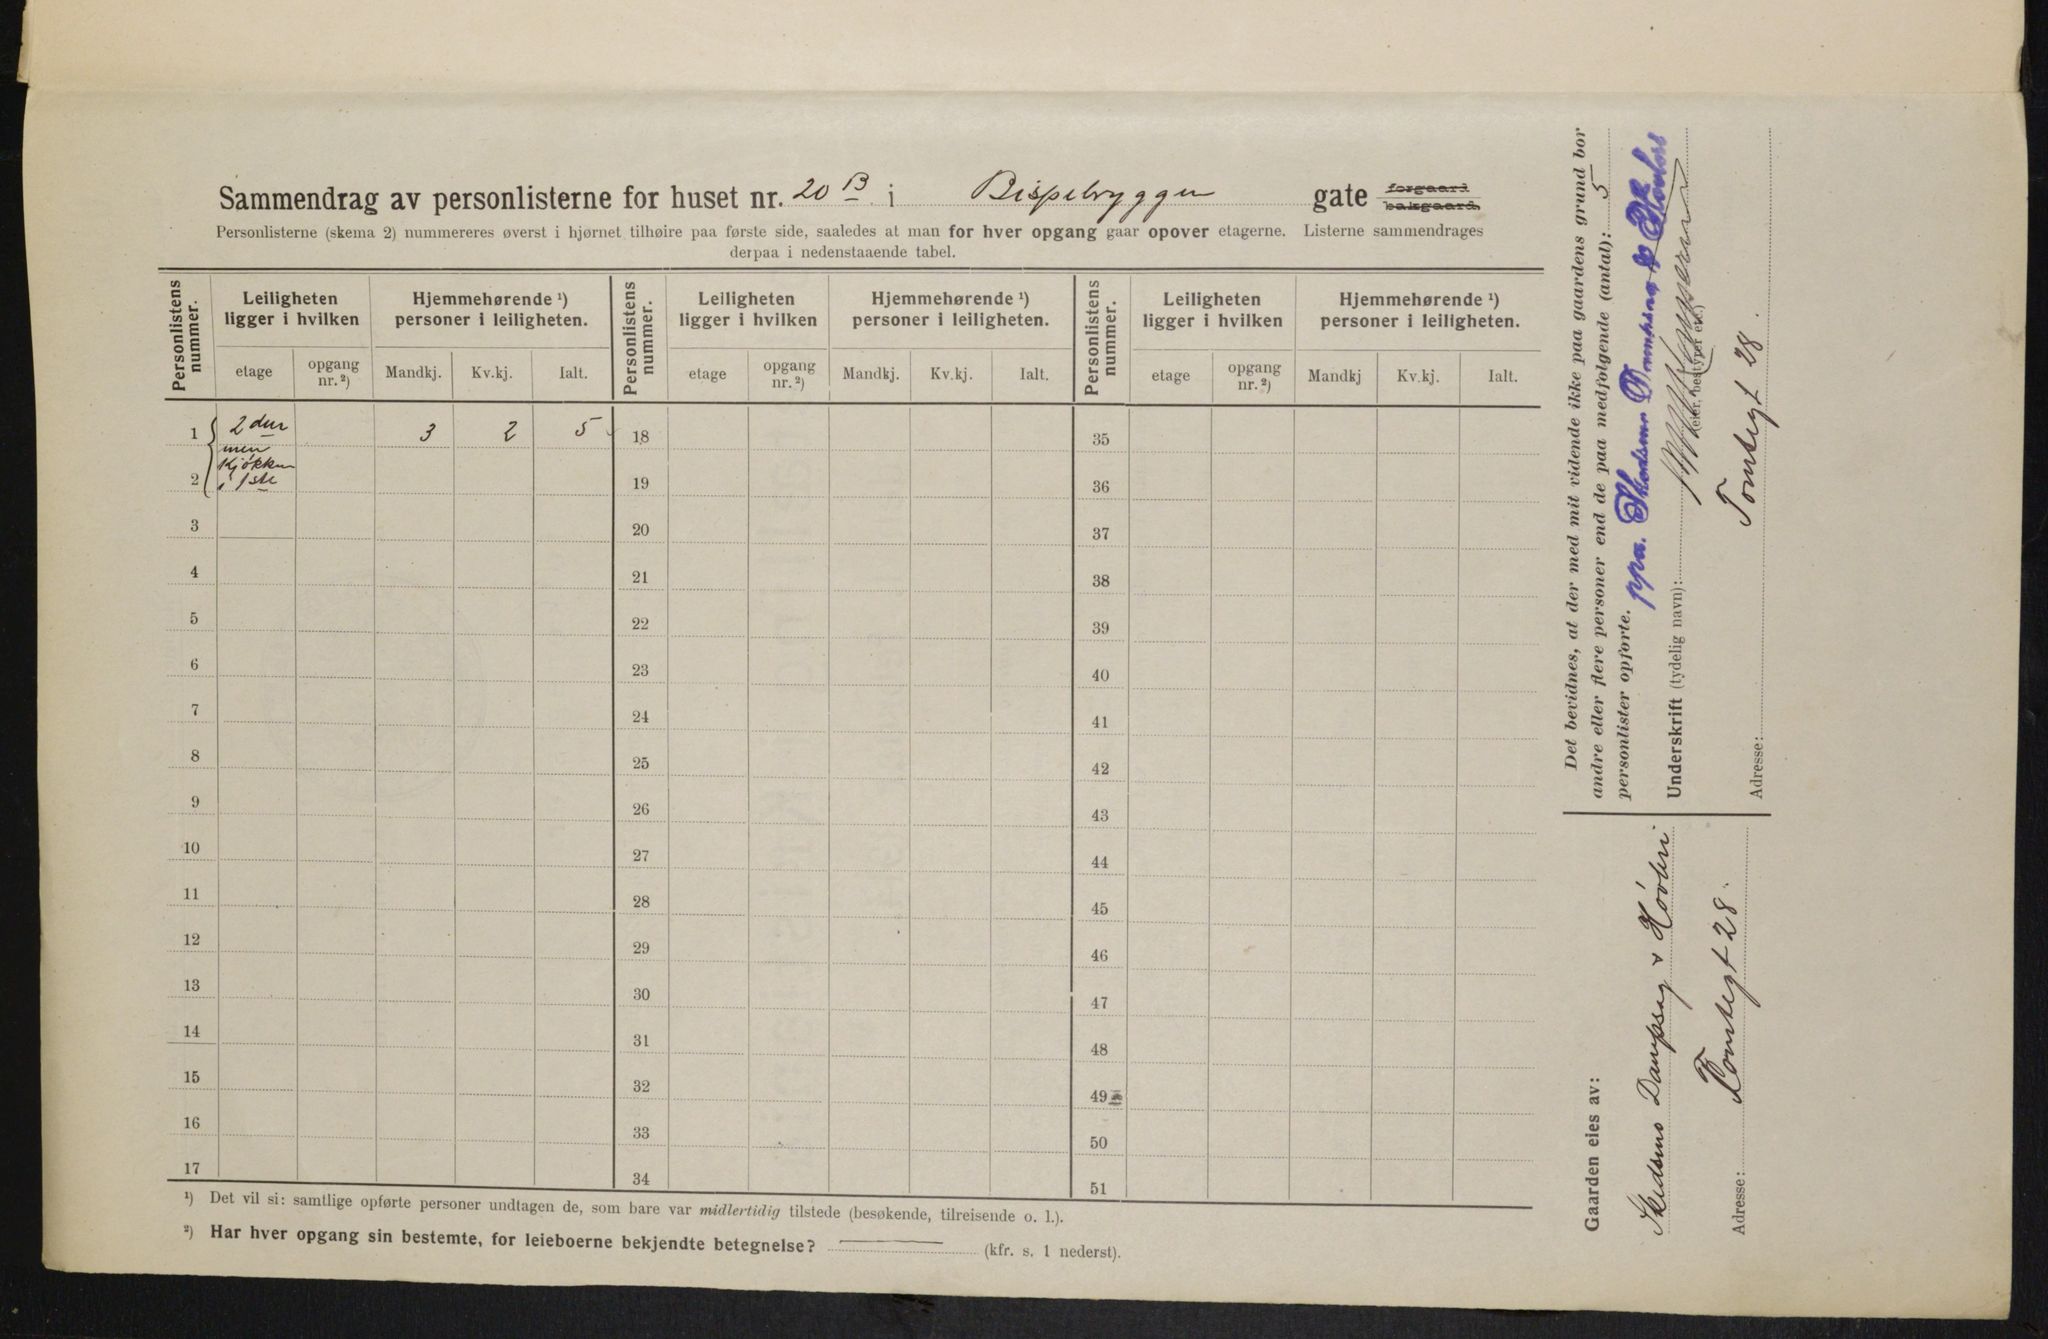 Sammendrag av personlisterne for huset nr. 20 B i Bispebryggen gate forgaard bakgaard.
Personlisterne (skema 2) nummereres øverst i hjørnet tilhøire paa første side, saaledes at man for hver opgang gaar opover etagerne. Listerne sammendrages
derpaa i nedenstaaende tabel.
Personlistens nummer. Leiligheten ligger i hvilken Hjemmehørende ¹) personer i leiligheten. Personlistens nummer. Leiligheten ligger i hvilken Hjemmehørende ¹) personer i leiligheten. Personlistens nummer. Leiligheten ligger i hvilken Hjemmehørende ¹) personer i leiligheten.
etage opgang nr. ²) Mandkj. Kv.kj. Ialt. etage opgang nr. ²) Mandkj. Kv.kj. Ialt. etage opgang nr. ²) Mandkj Kv.kj. Ialt.
1 2 den 3 2 5 18 35
men
kjøkken
2 i 1ste 19 36
3 20 37
4 21 38
5 22 39
6 23 40
7 24 41
8 25 42
9 26 43
10 27 44
11 28 45
12 29 46
13 30 47
14 31 48
15 32 49
16 33 50
17 34 51
¹) Det vil si: samtlige opførte personer undtagen de, som bare var midlertidig tilstede (besøkende, tilreisende o. l.).
²) Har hver opgang sin bestemte, for leieboerne bekjendte betegnelse? (kfr. s. 1 nederst).
Det bevidnes, at der med mit vidende ikke paa gaardens grund bor
andre eller flere personer end de paa medfølgende (antal): 5
personlister opførte.
ppa. Skedsmo Dampsag & Høvleri
Underskrift (tydelig navn):
(eier, bestyrer etc.)
Tomtegt 28.
Adresse:
Gaarden eies av:
Skedsmo Dampsag & Høvleri
Tomtegt 28.
Adresse: